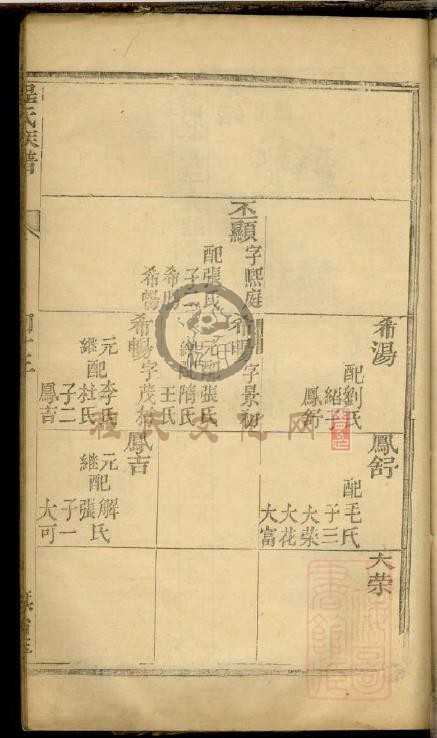 程氏族譜
希湯
配劉氏
紹子
鳳舒
鳳舒
配毛氏
子三
大榮
大花
大富
大荣
丕顯
字熙庭
配張氏
子二
希明
希暢
希明
字景初
元配張氏
繼配隋氏
王氏
希暢
字茂林
元配李氏
繼配杜氏
子二
鳳吉
鳳吉
元配解氏
繼配張氏
子一
大可
程氏文化网